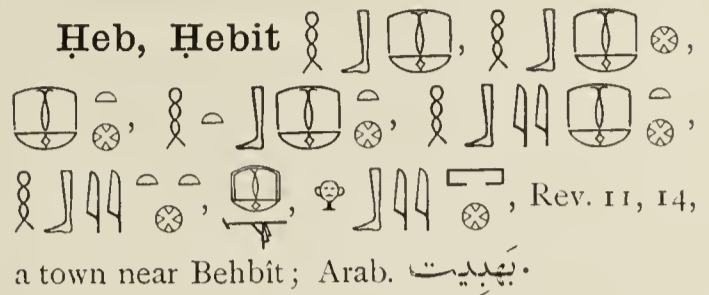 Ḥeb, Ḥebit 𓎛𓃀𓎳, 𓎛𓃀𓎳𓊖,
𓎳𓏏𓊖, 𓎛𓏏𓃀𓎳𓏏𓊖, 𓎛𓃀𓇌𓎳𓏏𓊖,
𓎛𓃀𓇌𓏏𓏏𓊖, 𓎳𓊾, 𓁷𓃀𓇌𓉐𓊖, Rev. 11, 14,
a town near Behbît; Arab. بَهْبِيت.